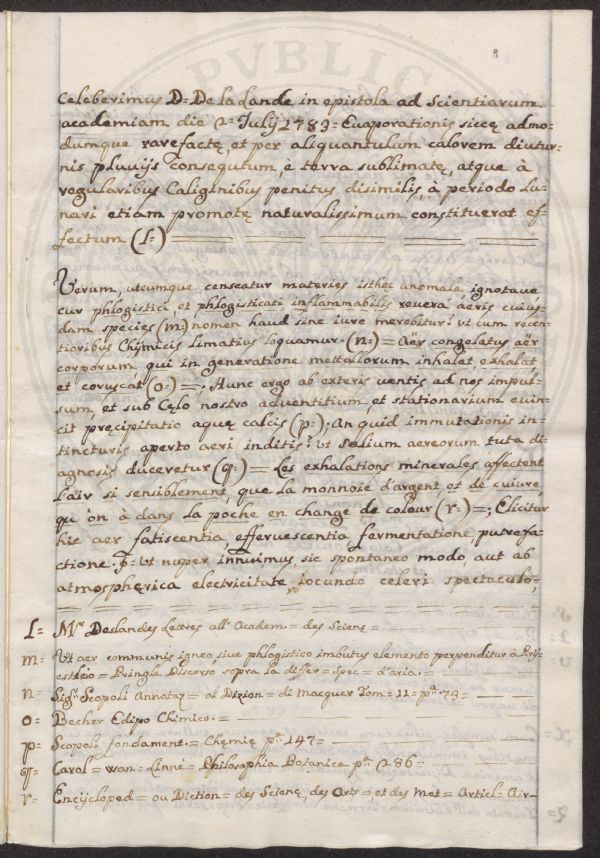 8
Celeberimus D= De la Lande in epistola ad Scientiarum
academiam die 2= Julij 1783= Euaporationis siccę admo-
dumque rarefactę, et per aliquantulum calorem diutur-
nis pluuijs consequtum è terra sublimatę, atque à
regularibus Caliginibus penitus disimilis, à periodo lu-
nari etiam promotę naturalissimum constituerat ef-
fectum (l=)
Verum, utcumque censeatur materies isthęc anomala, ignotaue
cur phlogistici, et phlogisticati inflammabilis reuera aëris cuius-
dam species (m=) nomen haud sine iure merebitur? ut cum recen-
tioribus Chijmicis limatius loquamur= (n=) = Aër congelatus aër
corporum, qui in generatione mettallorum inhalat, exhalat,
et coruscat (o=) =; Hunc ergo ab exteris ventis ad nos impul-
sum, et sub Cęlo nostro adventitium, et stationarium euin-
cit pręcipitatio aquę calcis (p=); An quid immutationis in-
tincturis aperto aeri inditis? Ut Salium aereorum tuta di-
agnosis duceretur (q=) = Les exhalations minerales affectent
l'air si sensiblement, que la monnoie d'argent et de cuiure,
qu'on à dans la poche en change de coleur (r=) =; Elicitur
hic aer fatiscentia, efferuescentia, fermentatione, putrefa-
ctione. Ut nuper innuimus, sic spontaneo modo, aut ab
atmosphęrica electricitate, iocundo celeri spectaculo,
l= Mr Deslandes Lettres all' Academ= des Scienc=
m= Ut aer communis igneo, siue phlogistico imbutus elemento perpenditur à Prij-
estleio = Pringle Discorso sopra la differ= Spec= d'aria.=
n= Sigr Scopoli Annotaz= al Dizion= di Macquer Tom= 11= pa 73=
o= Becher Edipo Chimico.=
p= Scopoli fondament.= Chemię pa 147=
q= Carol= wan= Linnè= Philosophia Botanica pa 286=
r= Encycloped= ou Diction= des Scienc, des Arts=, et des Met= Articl= Air=